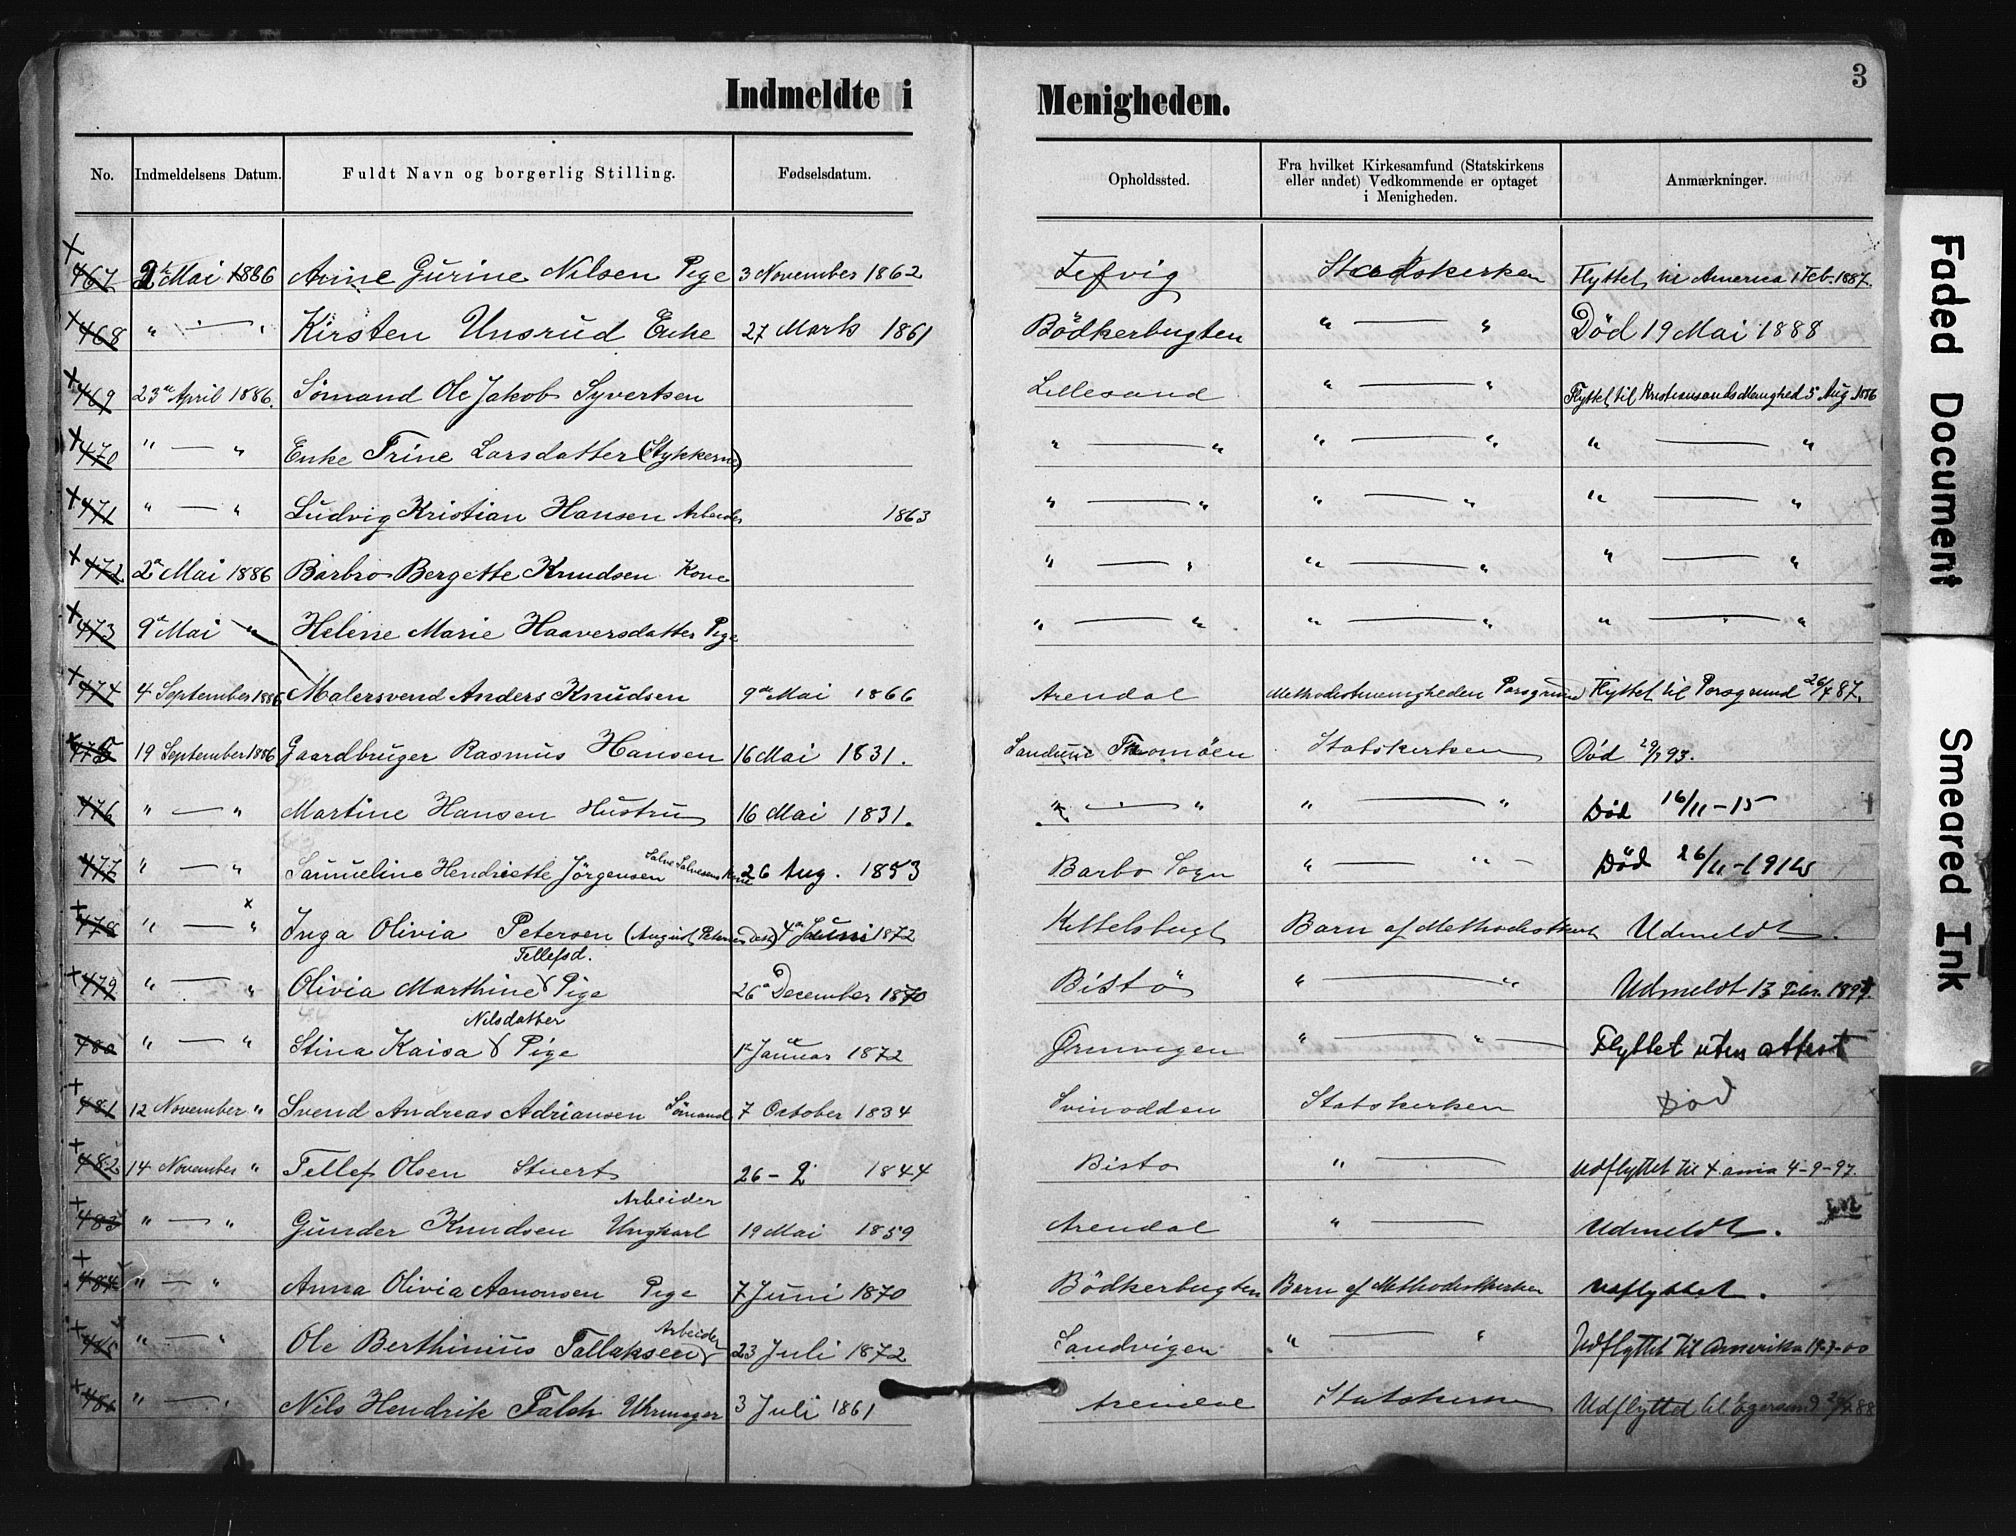 3
Indmeldte i Menigheden.
No. Indmeldelsens Datum. Fuldt Navn og borgerlig Stilling. Fødselsdatum. Opholdssted. Fra hvilket Kirkesamfund (Statskirkens eller andet) Vedkommende er optaget i Menigheden. Anmærkninger.
467 2 Mai 1886 Anne Gurine Nilsen Pige 3 November 1862 Statskirken Flyttet til America 1 Feb. 1887.
468 " — " Kirsten Unsrud Enke 27 Marts 1861 Bödkerbugten " — " Död 19 Mai 1888
469 23 April 1886. Sömand Ole Jakob Syvertsen Lillesand " — " Flyttet til Kristiansands Menighed 5 Aug 1886
470 " — " Enke Trine Larsdatter " — " " — " " — "
471 " — " Ludvig Kristian Hansen Arbeider 1863 " — " " — " " — "
472 2 Mai 1886 Barbro Bergette Knudsen Kone " — " " — " " — "
473 9 Mai " Helene Marie Haaversdatter Pige " — " " — " " — "
474 4 September 1886 Malersvend Anders Knudsen 9de Mai 1866 Arendal Methodistmenigheden Porsgrund Flyttet til Porsgrund 26/7 87.
475 19 September 1886 Gaardbruger Rasmus Hansen 16 Mai 1831. Tromöen Statskirken Död 93.
476 " — " Martine Hansen Hustru 16 Mai 1831. " — " " — " Död 16/11-15
477 " — " Samueline Henriette Jörgensen Salve Salvesens Kone 26 Aug. 1853 Barbo Sogn " — " Död 26/11-19
478 " — " Inga Olivia Petersen (August Petersens Dat) 4 Juni 1872 Kittelsbugt Barn af Methodistkirk Udmeldt.
479 " — " Olivia Marthine Tellefsd. Pige 26 December 1870 Bistö " — " Udmeldt 13 Febr. 1897.
480 " — " Stina Kaisa Nilsdatter Pige 1 Januar 1872 Ørnvigen " — " Flyttet uten attest
481 12 November " Svend Andreas Adriansen Sömand 7 October 1834 Svinodden Statskirken Död
482 14 November " Tellef Olsen Stuert 26 - 2 1844 Bisto " — Udflyttet til X ania 4-9-97.
483 " — " Gunder Knudsen Arbeider Ungkarl 19 Mai 1859 Arendal " — Udmeldt.
484 " — " Anna Olivia Aanonsen Pige 7 Juni 1870 Bödkerbugten Barn af Methodistkirken Udflyttet.
485 " — " Ole Berthinius Tallaksen Arbeider 23 Juli 1872 Sandvigen " — " Udflyttet til Amerika 19-3-00
486 " — " Nils Hendrik Falch Uhrmager 3 Juli 1861 Arendal Statskirken Udflyttet til Egersund 88
Faded Document
Smeared Ink